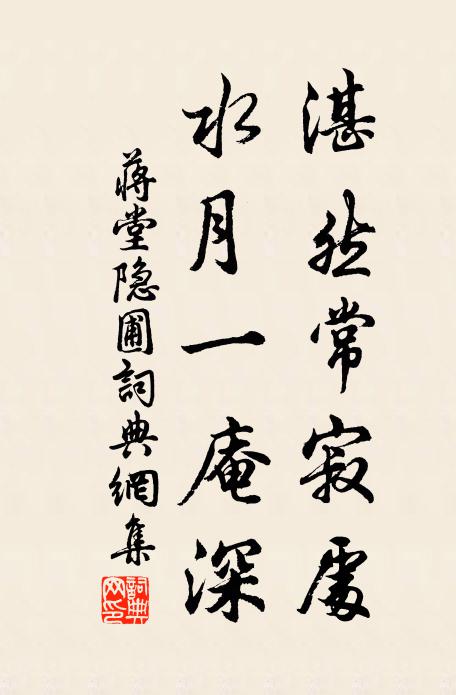 湛然常寂處
水月一庵深
蔣堂隐圃詞典網集
詞典网印